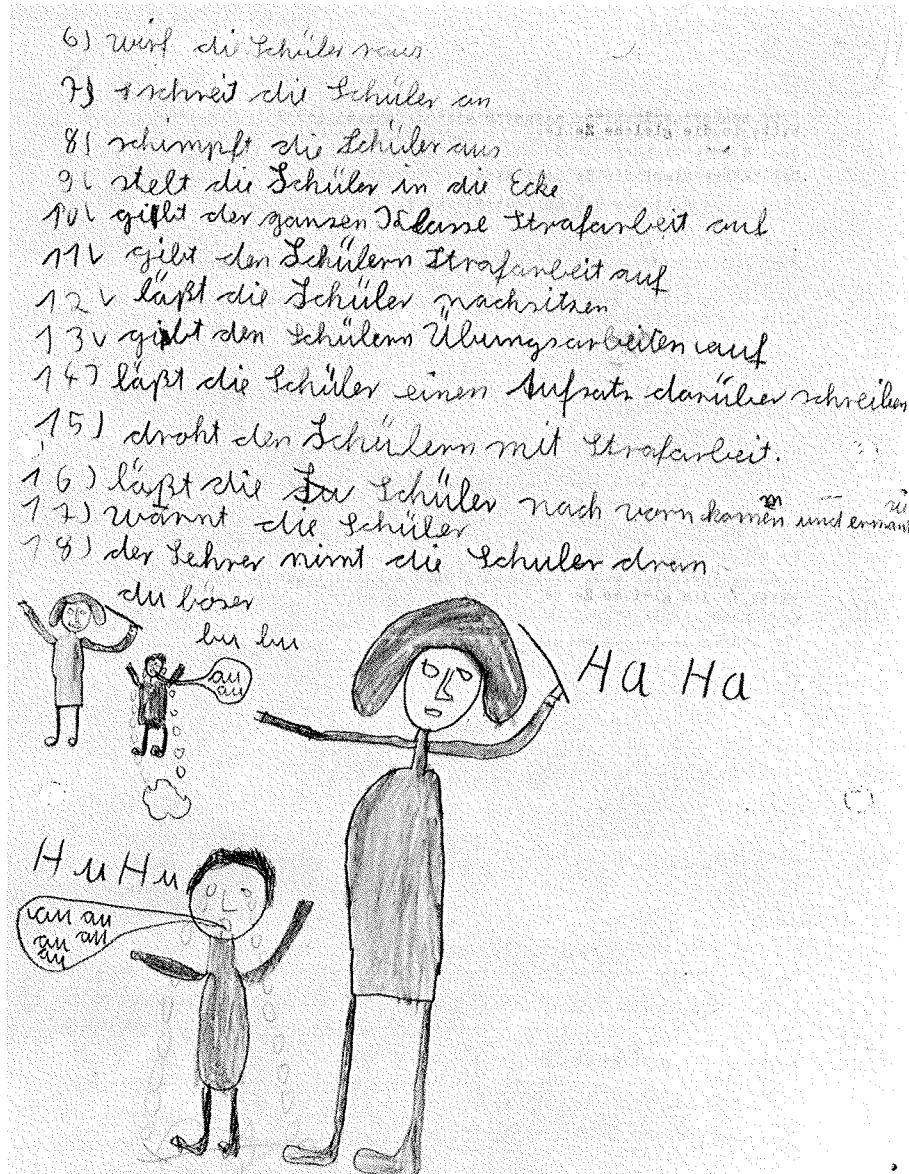 6) wirf di Schüler raus
7) schreit die Schüler an
8) schimpft die Schüler aus
9) stelt die Schüler in die Ecke
10) gibt der gansen Klasse Strafarbeit auf
11) gibt den Schülern Strafarbeit auf
12) läßt die Schüler nachsitzen
13) gibt den Schülern Übungsarbeiten auf
14) läßt die Schüler einen Aufsatz darüber schreiben
15) droht den Schülern mit Strafarbeit.
16) läßt die Schüler nach vorn kommen und ermant
17) warnt die Schüler
18) der Lehrer nimt die Schuler dran
du böser
bu bu
au
au
Ha Ha
Hu Hu
au au
au au
au